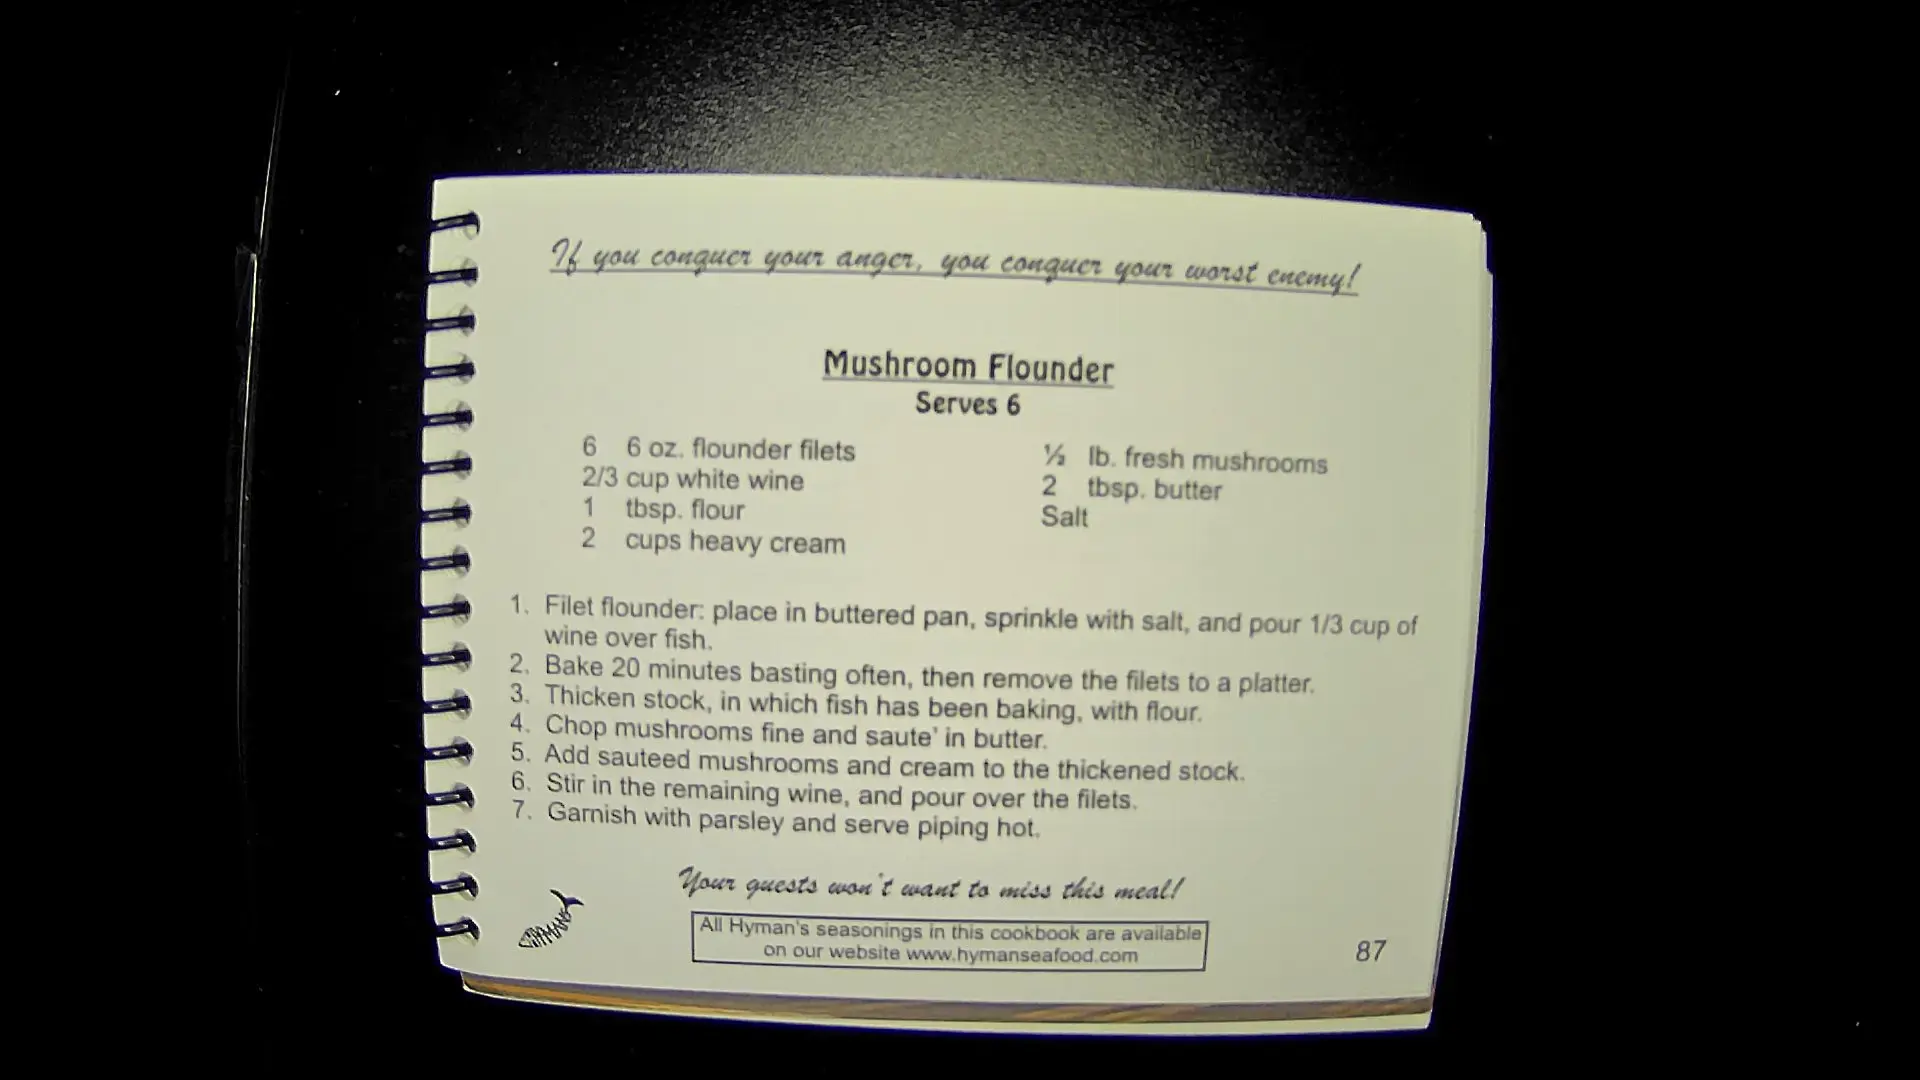 If you conquer your anger, you conquer your worst enemy!
Mushroom Flounder
Serves 6
6 6 oz. flounder filets
2/3 cup white wine
1 tbsp. flour
2 cups heavy cream
½ lb. fresh mushrooms
2 tbsp. butter
Salt
1. Filet flounder: place in buttered pan, sprinkle with salt, and pour 1/3 cup of
wine over fish.
2. Bake 20 minutes basting often, then remove the filets to a platter.
3. Thicken stock, in which fish has been baking, with flour.
4. Chop mushrooms fine and saute' in butter.
5. Add sauteed mushrooms and cream to the thickened stock.
6. Stir in the remaining wine, and pour over the filets.
7. Garnish with parsley and serve piping hot.
Your guests won't want to miss this meal!
HYMANS
All Hyman's seasonings in this cookbook are available
on our website www.hymanseafood.com
87